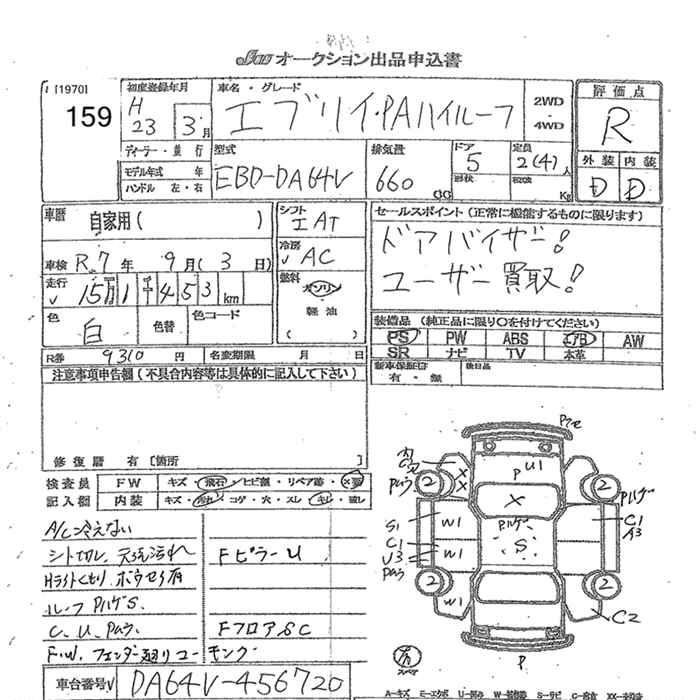 オークション出品申込書
[1970]
159
初度登録年月
H 23 3月
車名・グレード
エブリイ・PAハイルーフ
2WD
4WD
評価点
R
外装 内装
D D
ディーラー・並行
モデル年式 年
ハンドル 左・右
型式
EBD-DA64V
排気量
660 CC
ドア
5
形状
定員
2(4)人
Kg
車歴
自家用( )
車検 R.7年 9月(3日)
走行 15万1千453km
色
白
色替
色コード
シフト
エAT
冷房
AC
燃料
ガソリン
軽油
( )
セールスポイント(正常に機能するものに限ります)
ドアバイザー!
ユーザー買取!
装備品(純正品に限り○を付けてください)
PS PW ABS エアB AW
SR ナビ TV 本革
新車保証書
有・無
後日品
R券 9310円 名変期限 月 日
注意事項申告欄(不具合内容等は具体的に記入して下さい)
修復歴 有 [箇所 ]
検査員 FW キズ・飛石・ヒビ割・リペア跡・X要
記入欄 内装 キズ・汚れ・コゲ・穴・スレ・キレ・欠し
A/C冷えない
シート切レ、天張汚れ
Hライトくもり ボウセイ有
ルーフPハゲS.
C、U、Pムラ
F.W.フェンダー廻りコーキング
Fピラー U
FフロアSC
車台番号 DA64V-456720
P U1
X
Pハゲ
S
2 2 2 2
Pムラ
X X
S1
C1
U3
Pムラ
W1
W1
W1
Pハゲ
C1
C2
P
スペア
A-キズ E-エクボ U-凹み W-補修跡 S-サビ C-腐食 XX-交換済